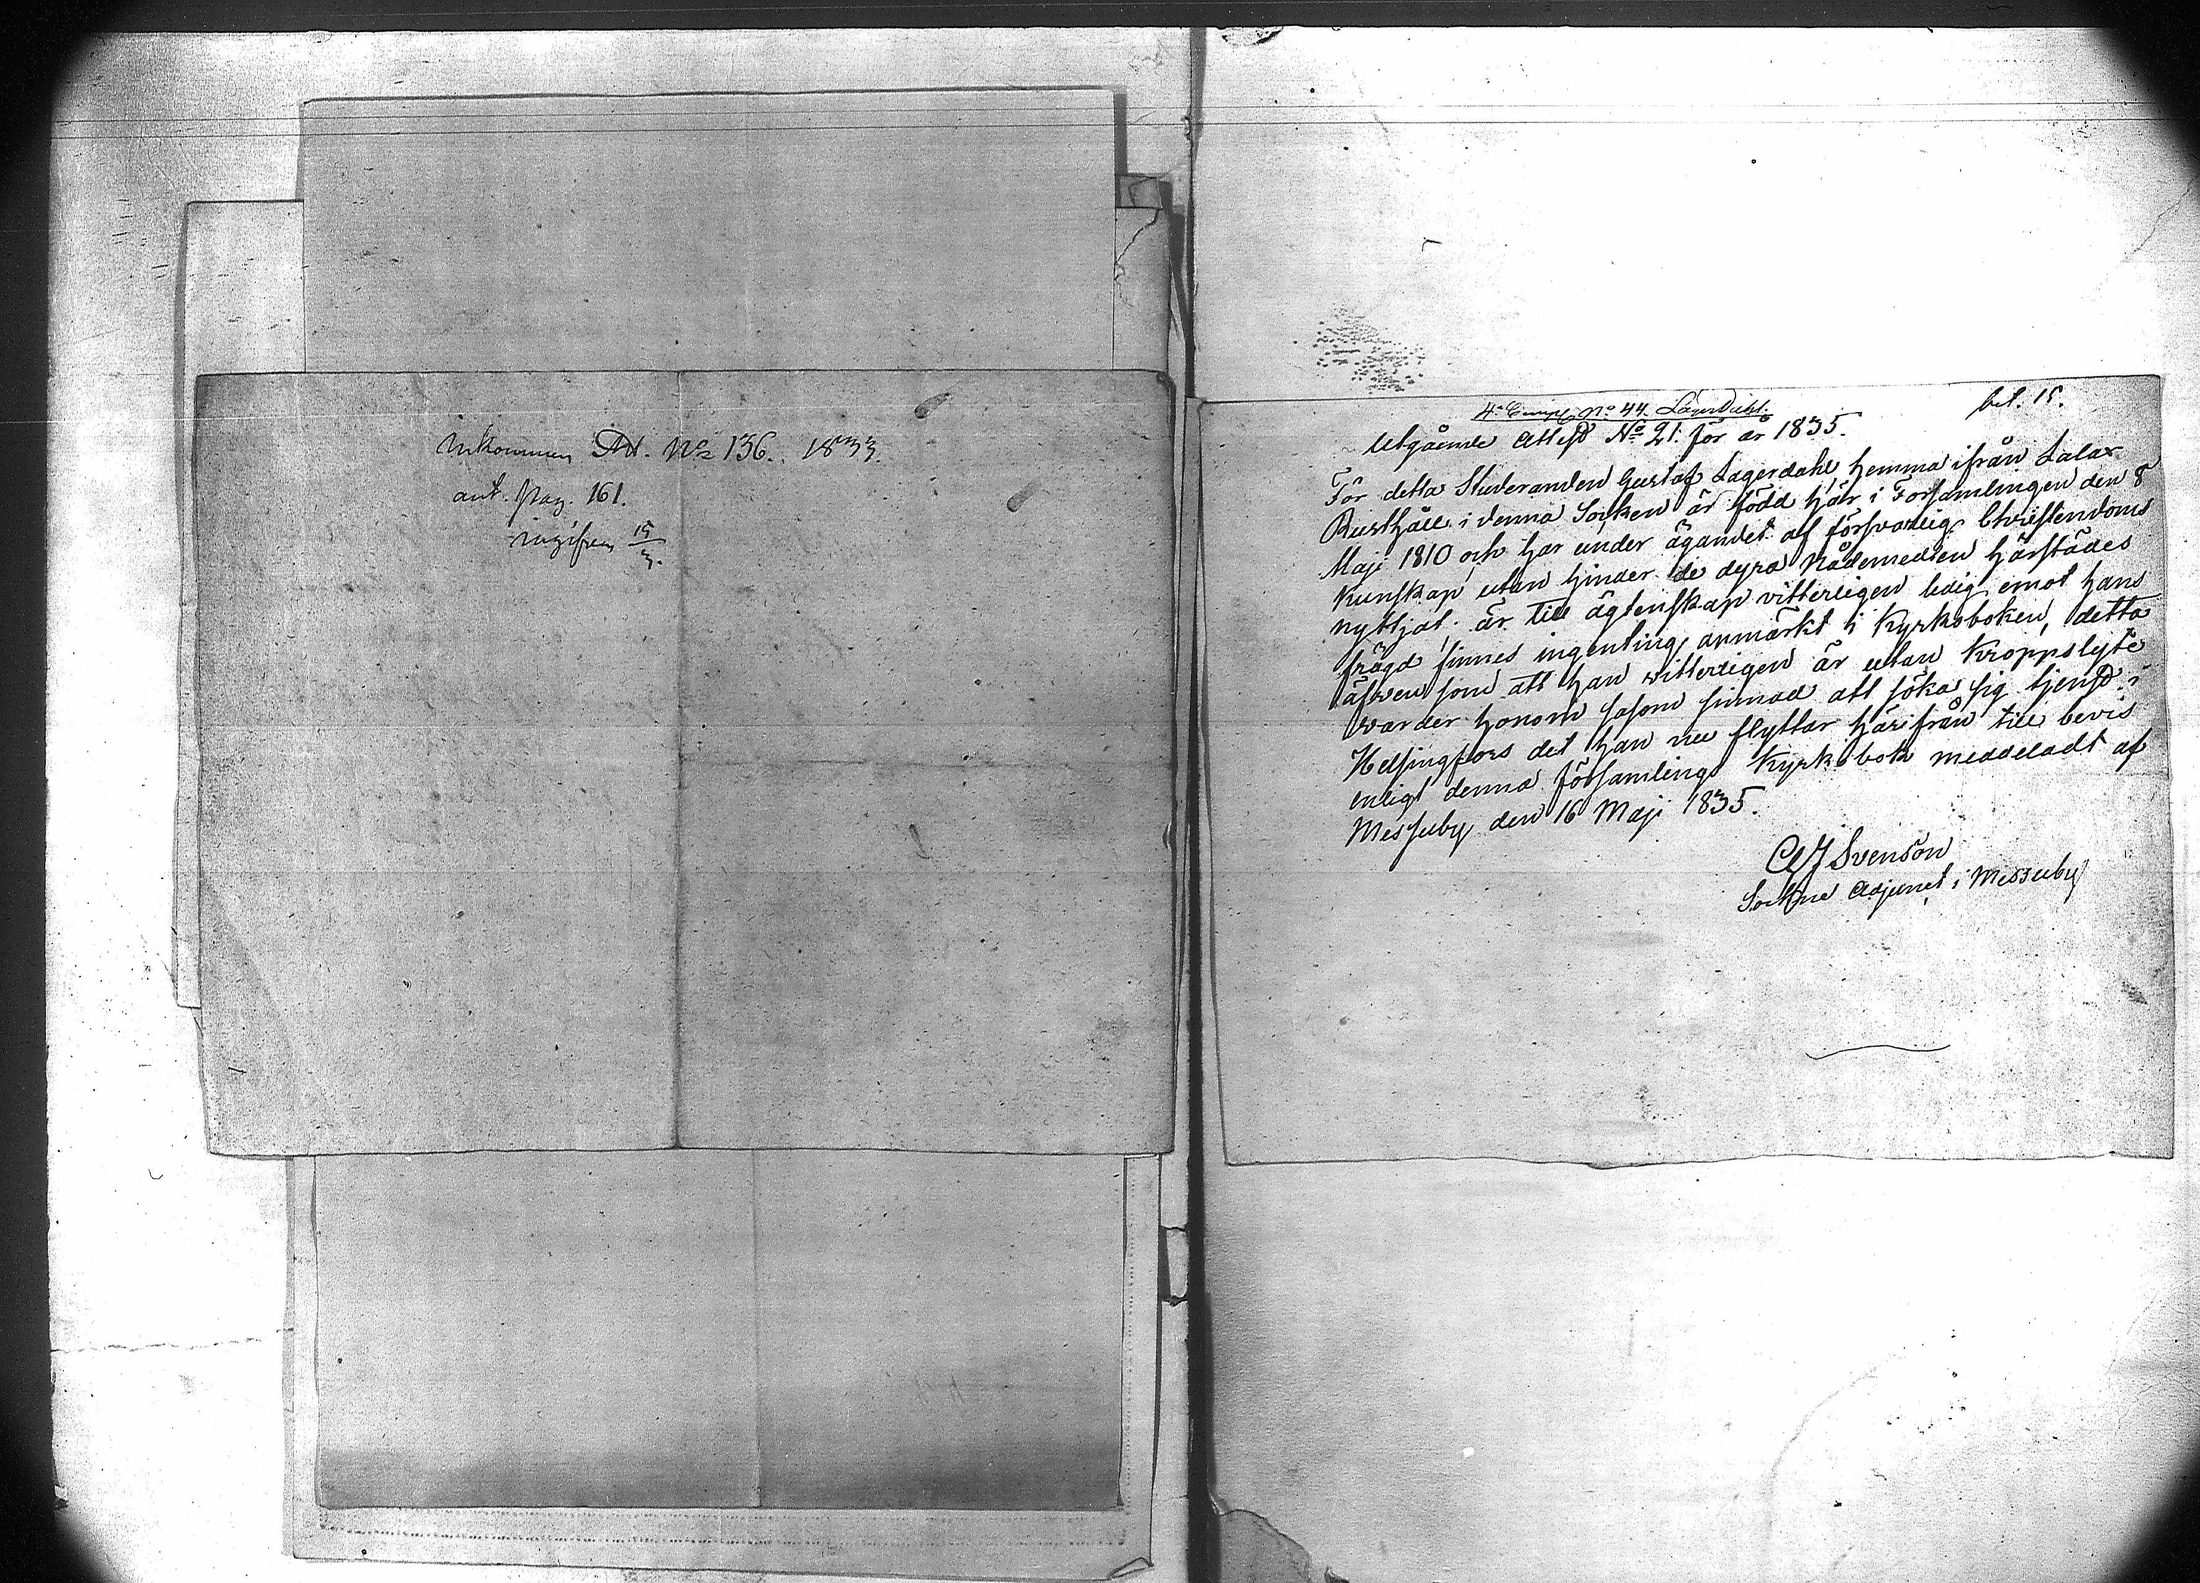 Inkommen Att. No 136. 1833.
ant. Pag. 161.
15/3.
4e Comp. No 44. Lagerdahl.
bet. 15.
Utgående Attest No 21. för år 1835.
För detta Studeranden Gustaf Lagerdahl hemma ifrån Lalax
Rusthåll i denna Socken är född här i Församlingen den 8
Maji 1810 och har under ägandet af försvarlig Christendoms
Kunskap utan hinder de dyra Nådemedlen härstädes
nyttjat. är till ägtenskap vitterligen ledig emot hans
frägd finnes ingenting anmärkt i Kyrkoboken, detta
äfven som att han vitterligen är utan Kroppslyte
varder honom såsom sinnad att söka sig tjenst i
Helsingfors det han nu flyttar härifrån till bevis
enligt denna församlings Kyrkobok meddeladt af
Messuby den 16 Maji 1835.
Svenson
Sockne Adjunct i Messuby